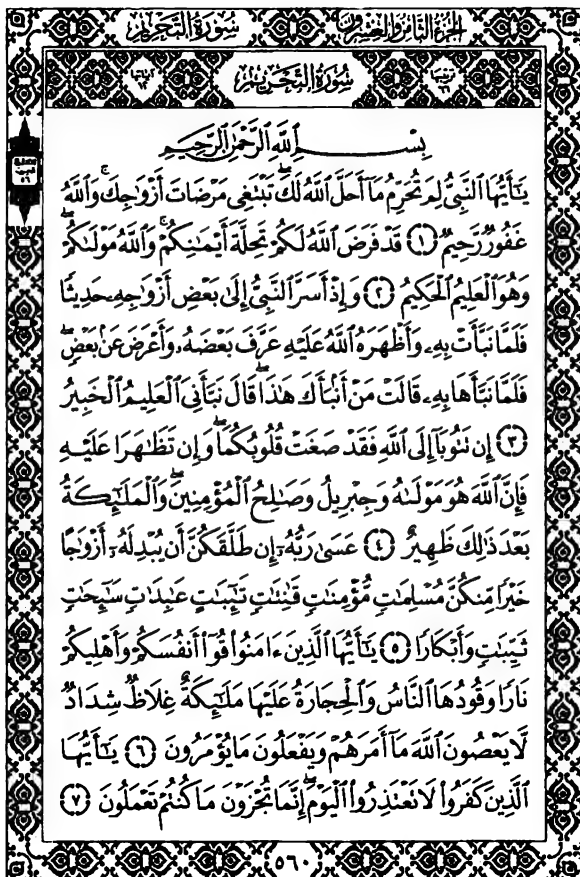 سُورَةُ التَّحْرِيمِ الجُزْءُ الثَّامِنُ وَالعِشْرُونَ
سُورَةُ التَّحْرِيمِ
بِسْمِ ٱللَّهِ ٱلرَّحْمَٰنِ ٱلرَّحِيمِ
يَٰٓأَيُّهَا ٱلنَّبِىُّ لِمَ تُحَرِّمُ مَآ أَحَلَّ ٱللَّهُ لَكَۖ تَبْتَغِى مَرْضَاتَ أَزْوَٰجِكَۚ وَٱللَّهُ
غَفُورٌ رَّحِيمٌ ۝١ قَدْ فَرَضَ ٱللَّهُ لَكُمْ تَحِلَّةَ أَيْمَٰنِكُمْۚ وَٱللَّهُ مَوْلَىٰكُمْۖ
وَهُوَ ٱلْعَلِيمُ ٱلْحَكِيمُ ۝٢ وَإِذْ أَسَرَّ ٱلنَّبِىُّ إِلَىٰ بَعْضِ أَزْوَٰجِهِۦ حَدِيثًا
فَلَمَّا نَبَّأَتْ بِهِۦ وَأَظْهَرَهُ ٱللَّهُ عَلَيْهِ عَرَّفَ بَعْضَهُۥ وَأَعْرَضَ عَنۢ بَعْضٍۖ
فَلَمَّا نَبَّأَهَا بِهِۦ قَالَتْ مَنْ أَنۢبَأَكَ هَٰذَاۖ قَالَ نَبَّأَنِىَ ٱلْعَلِيمُ ٱلْخَبِيرُ
۝٣ إِن تَتُوبَآ إِلَى ٱللَّهِ فَقَدْ صَغَتْ قُلُوبُكُمَاۖ وَإِن تَظَٰهَرَا عَلَيْهِ
فَإِنَّ ٱللَّهَ هُوَ مَوْلَىٰهُ وَجِبْرِيلُ وَصَٰلِحُ ٱلْمُؤْمِنِينَۖ وَٱلْمَلَٰٓئِكَةُ
بَعْدَ ذَٰلِكَ ظَهِيرٌ ۝٤ عَسَىٰ رَبُّهُۥٓ إِن طَلَّقَكُنَّ أَن يُبْدِلَهُۥٓ أَزْوَٰجًا
خَيْرًا مِّنكُنَّ مُسْلِمَٰتٍ مُّؤْمِنَٰتٍ قَٰنِتَٰتٍ تَٰٓئِبَٰتٍ عَٰبِدَٰتٍ سَٰٓئِحَٰتٍ
ثَيِّبَٰتٍ وَأَبْكَارًا ۝٥ يَٰٓأَيُّهَا ٱلَّذِينَ ءَامَنُوا۟ قُوٓا۟ أَنفُسَكُمْ وَأَهْلِيكُمْ
نَارًا وَقُودُهَا ٱلنَّاسُ وَٱلْحِجَارَةُ عَلَيْهَا مَلَٰٓئِكَةٌ غِلَاظٌ شِدَادٌ
لَّا يَعْصُونَ ٱللَّهَ مَآ أَمَرَهُمْ وَيَفْعَلُونَ مَا يُؤْمَرُونَ ۝٦ يَٰٓأَيُّهَا
ٱلَّذِينَ كَفَرُوا۟ لَا تَعْتَذِرُوا۟ ٱلْيَوْمَۖ إِنَّمَا تُجْزَوْنَ مَا كُنتُمْ تَعْمَلُونَ ۝٧
٥٦٠